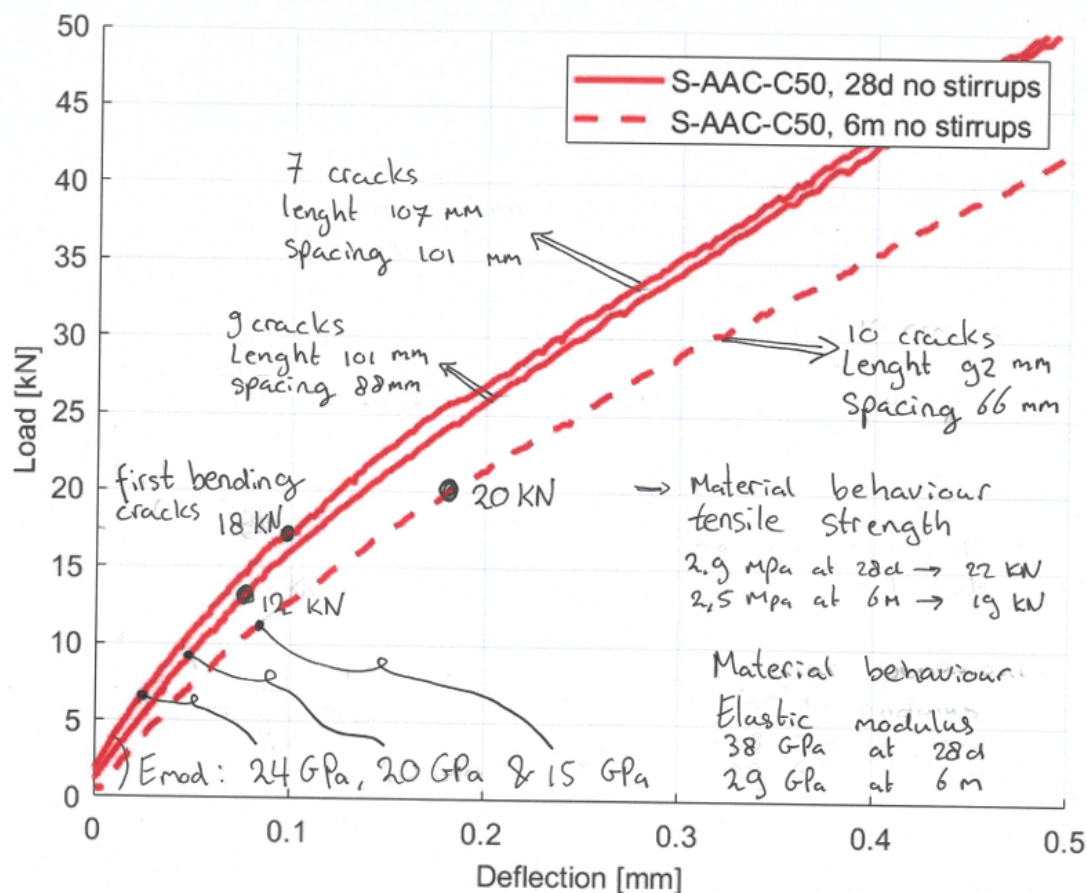 50
45
40
35
30
25
20
15
10
5
0
Load [kN]
S-AAC-C50, 28d no stirrups
S-AAC-C50, 6m no stirrups
7 cracks
lenght 107 mm
spacing 101 mm
9 cracks
Lenght 101 mm
spacing 88mm
10 cracks
Lenght 92 mm
Spacing 66 mm
first bending
cracks
18 KN
12 KN
20 KN
→ Material behaviour
tensile strength
2.9 Mpa at 28d → 22 KN
2,5 Mpa at 6M → 19 KN
Material behaviour
Elastic modulus
38 GPa at 28d
29 GPa at 6 m
Emod: 24 GPa, 20 GPa & 15 GPa
0 0.1 0.2 0.3 0.4 0.5
Deflection [mm]